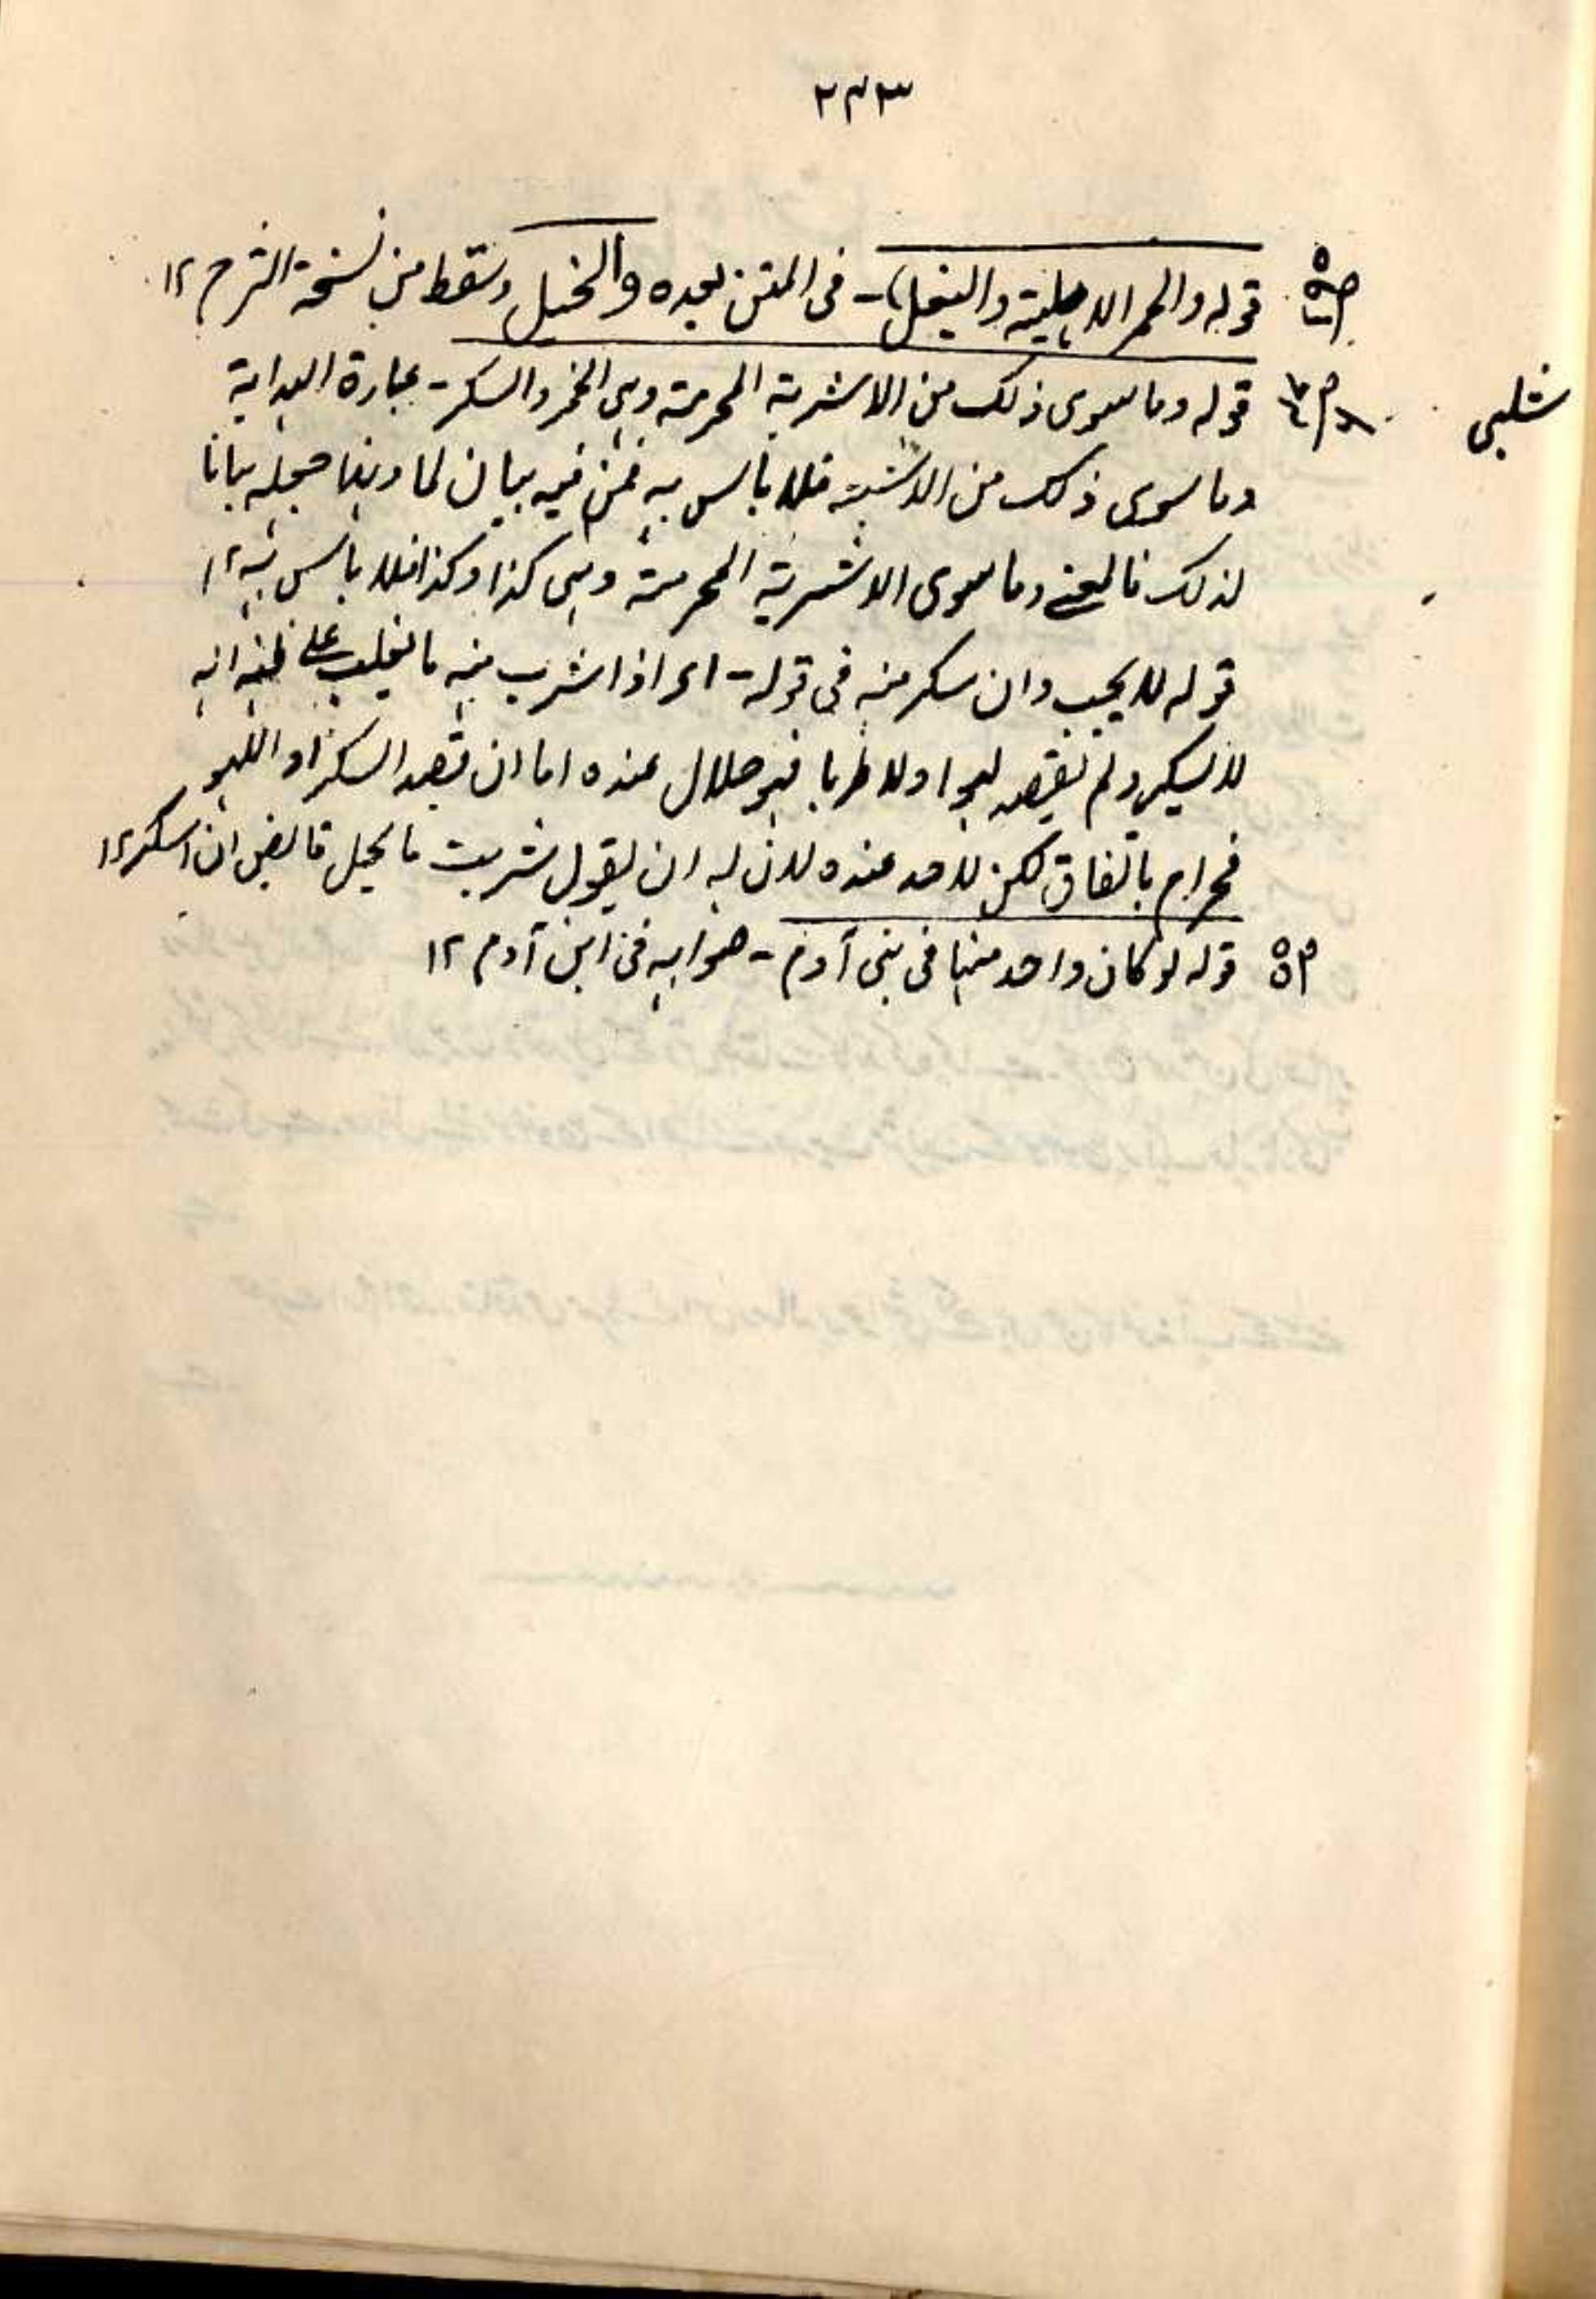 ۲۳۳
ص۵ قوله والحمر الاهلية والبغل) - فى المتن بعده والخيل وسقط من نسخة الشرح ۱۲
شلبى
قوله وما سوى ذلك من الاشربة المحرمة وهى الخمر والسكر - عبارة الهداية
وما سوى ذلك من الاشربة فلا بأس به فمن فيه بيان لما وههنا جعله بيانا
لذلك فالمعنى وما سوى الاشربة المحرمة وهى كذا وكذا فلا بأس به ۱۲
قوله لا يجب وان سكر منه فى قوله - اى اذا شرب منه ما يغلب على ظنه انه
لا يسكر ولم يقصد لهوا ولا طربا فهو حلال عنده اما ان قصد السكر او اللهو
فحرام باتفاق لكن لا حد عنده لان له ان يقول شربت ما يحل ان اسكر ۱۲
ص۵ قوله لو كان واحد منها فى بنى آدم - صوابه فى ابن آدم ۱۲